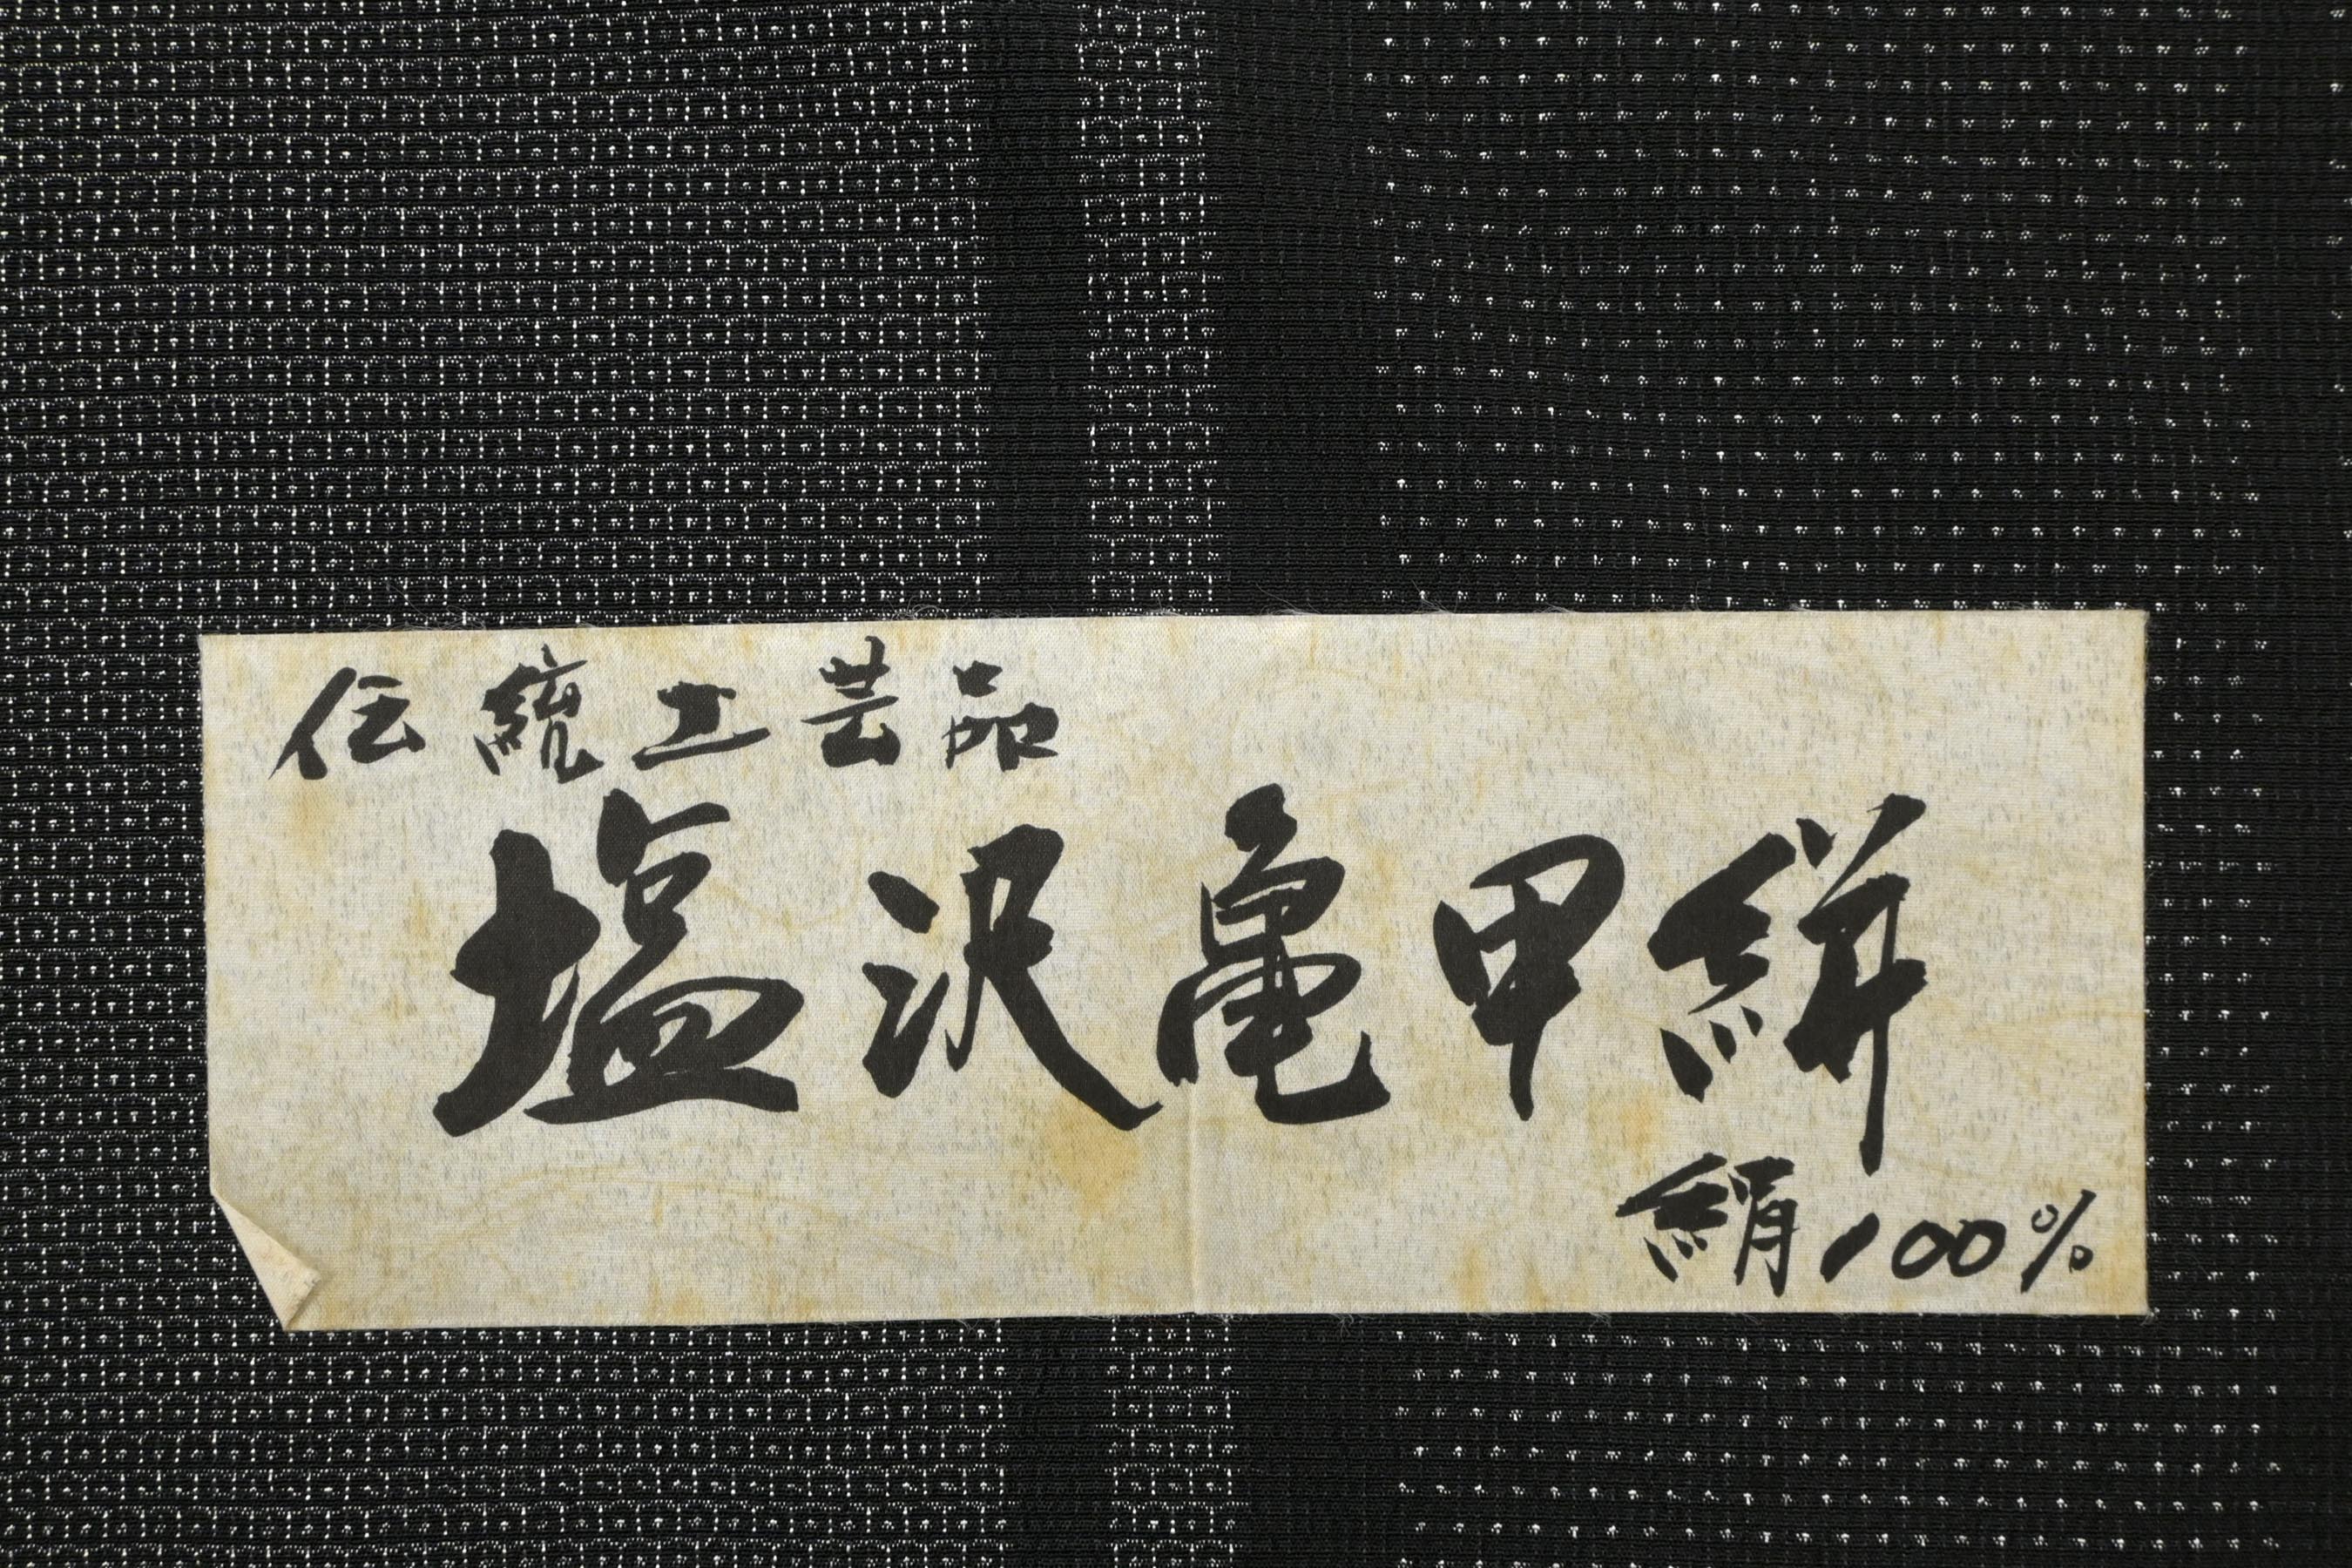 伝統工芸品
塩沢亀甲絣
絹100%